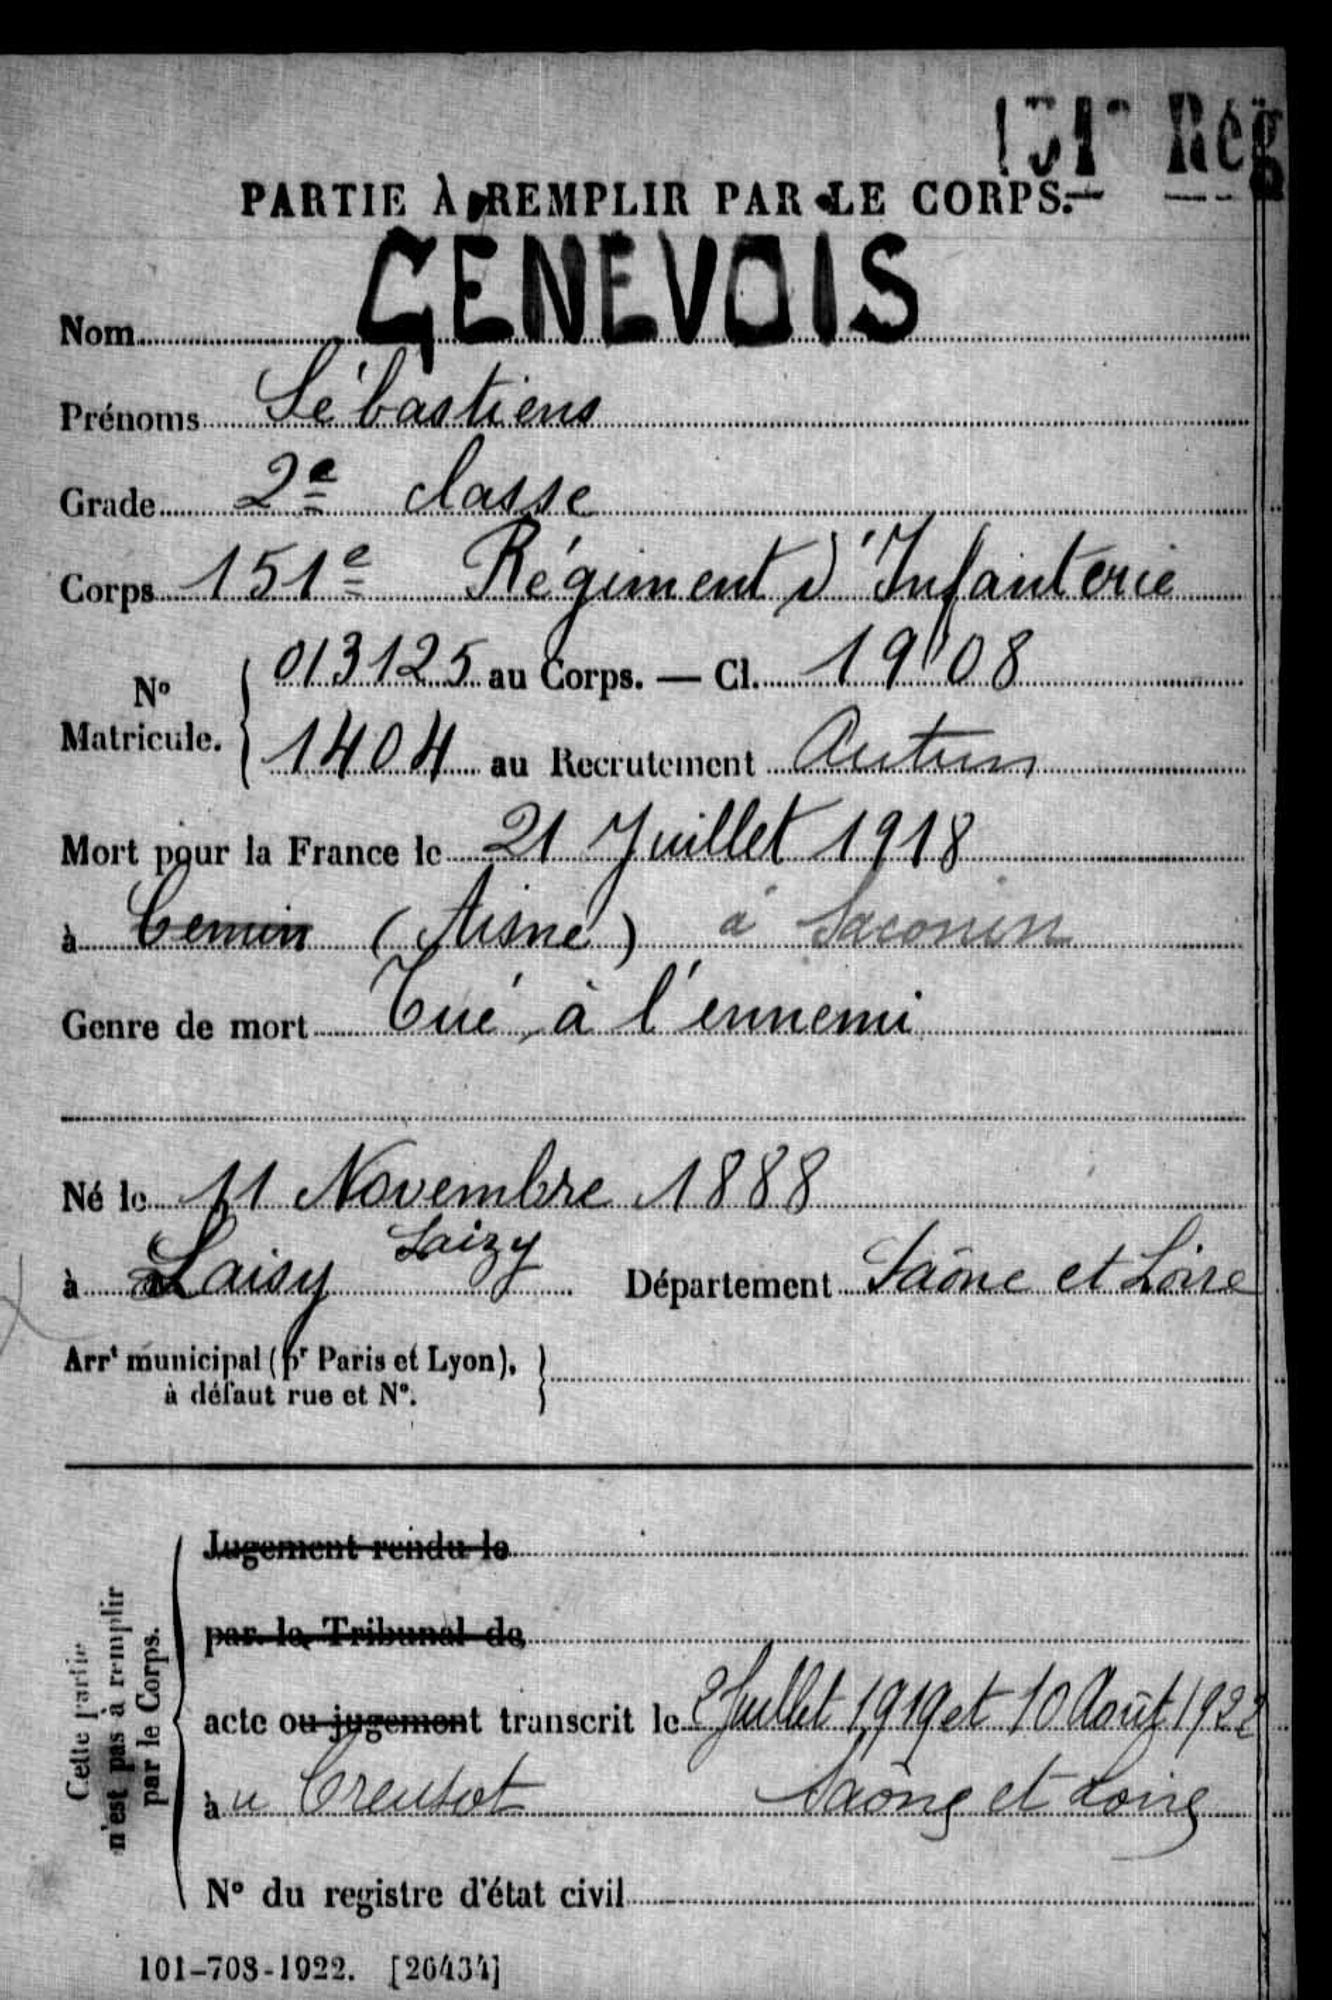 151e Rég
PARTIE À REMPLIR PAR LE CORPS.
Nom GENEVOIS
Prénoms Sébastien
Grade 2e classe
Corps 151e Régiment d'Infanterie
No Matricule. { 013125 au Corps. — Cl. 1908
1404 au Recrutement Autun
Mort pour la France le 21 Juillet 1918
à (Aisne) à Saconin
Genre de mort Tué à l'ennemi
Né le 11 Novembre 1888
à Laisy Laizy Département Saône et Loire
Arrt municipal (pr Paris et Lyon), }
à défaut rue et No.
Cette partie
n'est pas à remplir
par le Corps.
Jugement rendu le
par le Tribunal de
acte ou jugement transcrit le 2 Juillet 1919 et 10 Août 1922
au Creusot Saône et Loire
No du registre d'état civil
101-708-1922. [26434]